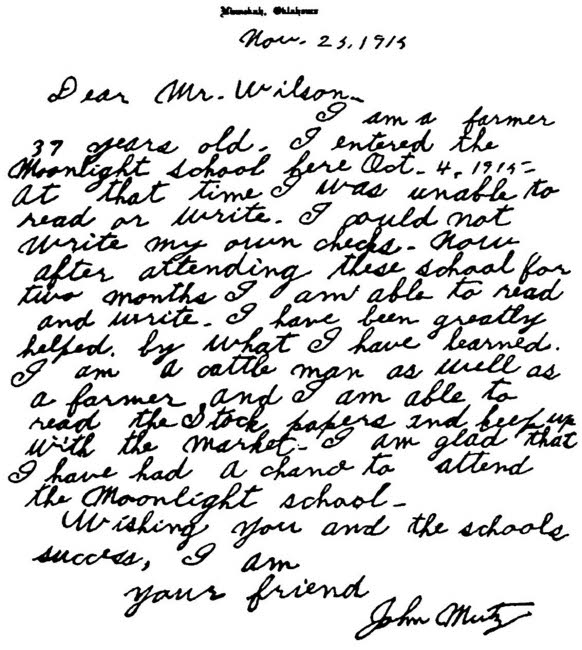 Oklahoma
Nov. 23, 1915
Dear Mr. Wilson-
I am a farmer
37 years old. I entered the
Moonlight school here Oct. 4, 1915-
At that time I was unable to
read or write. I could not
write my own checks. Now
after attending these school for
two months I am able to read
and write. I have been greatly
helped. by what I have learned.
I am a cattle man as well as
a farmer and I am able to
read the Stock papers and keep up
with the market. I am glad that
I have had a chance to attend
the Moonlight school-
Wishing you and the schools
success, I am
your friend
John Mutz